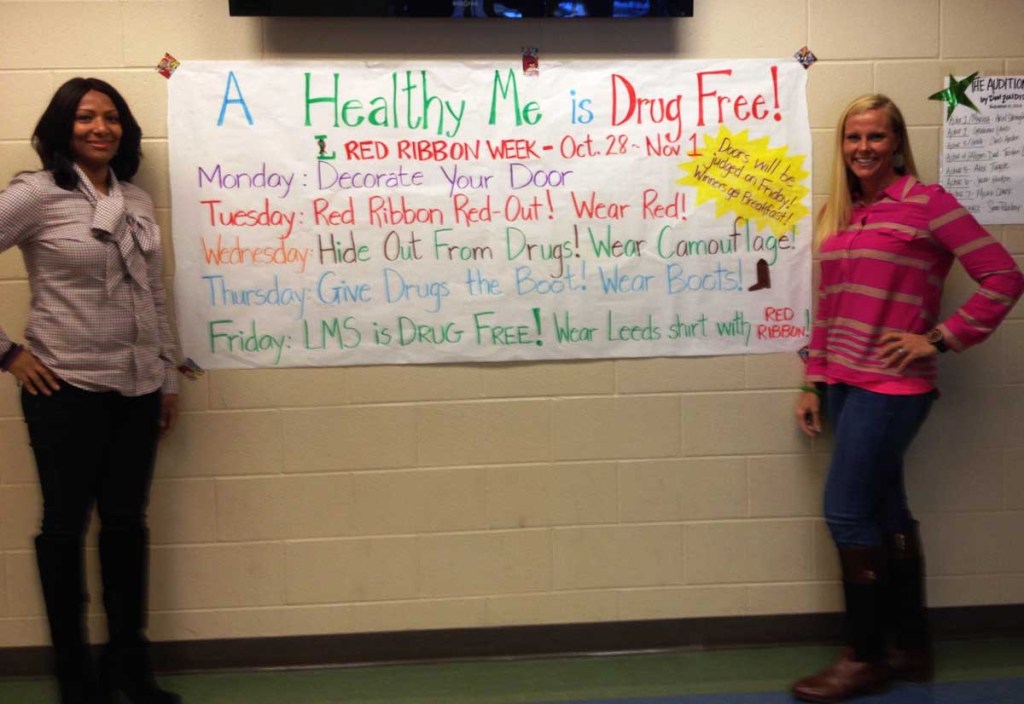 A Healthy Me is Drug Free!
L RED RIBBON WEEK - Oct. 28 - Nov 1
Doors will be
judged on Friday!
Winners get Breakfast!
Monday: Decorate Your Door
Tuesday: Red Ribbon Red-Out! Wear Red!
Wednesday: Hide Out From Drugs! Wear Camouflage!
Thursday: Give Drugs the Boot! Wear Boots!
Friday: LMS is DRUG FREE! Wear Leeds shirt with RED RIBBON!
THE AUDITION